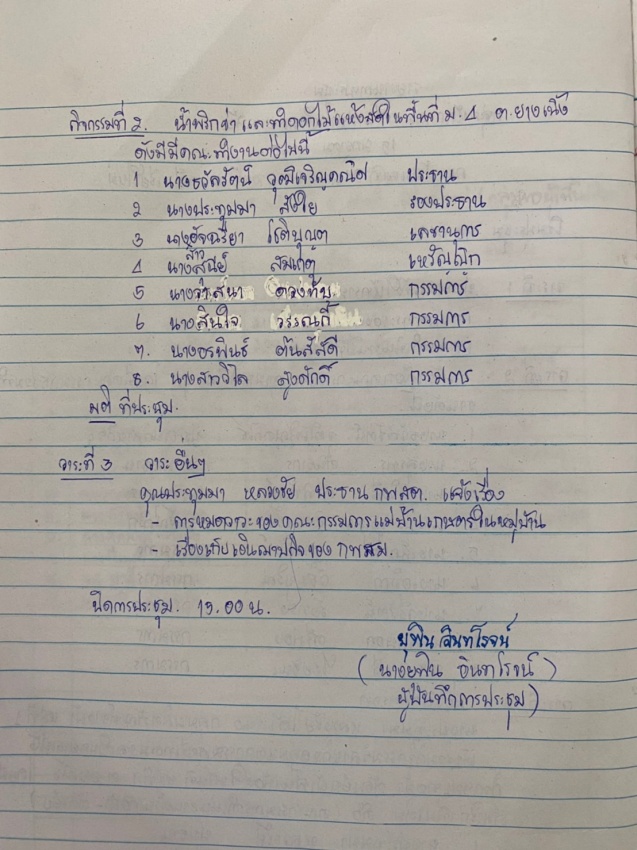 กิจกรรมที่ 2. น้ำพริกข่า และทำดอกไม้แห้งสดในพื้นที่ ม. 4 ต.ยางเนิ้ง
ดังมีมีคณะทำงานต่อไปนี้
1 นางธวัลรัตน์ วุฒิเจริญคณิต ประธาน
2 นางประทุมมา รองประธาน
3 นางอัจฉริยา โชติบุณฑ เลขานุการ
สาว
4 นางสุนีย์ สมเกตุ เหรัญญิก
5 นางวาสนา ดวงทับ กรรมการ
6 นางสินใจ กรรมการ
7. นางอรพินธ์ ต้นสุสดี กรรมการ
8. นางสาววิไล สูงศักดิ์ กรรมการ
มติ ที่ประชุม.
วาระที่ 3 วาระอื่นๆ
คุณประทุมมา หลวงชัย ประธาน กพสต. แจ้งเรื่อง
- การหมดวาระของคณะกรรมการแม่บ้านเกษตรในหมู่บ้าน
- เรื่องเก็บเงินฌาปนกิจของ กพสม.
ปิดการประชุม. 15.00 น.
ยุพิน อินทโรจน์
( นางยุพิน อินทโรจน์ )
ผู้บันทึกการประชุม)